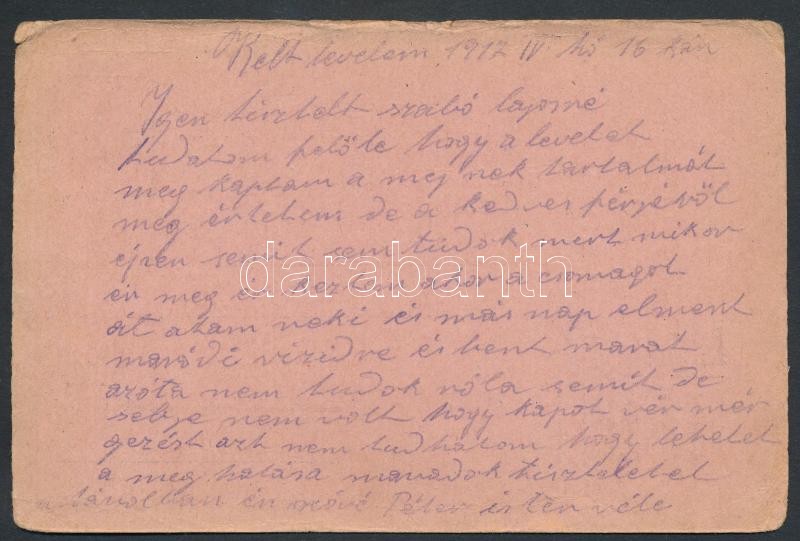 Kelt levelem 1917 IV hó 16 kán
Igen tisztelt szabó lajosné
tudatom felőle hogy a levelet
meg kaptam a mej nek tartalmát
meg értetem de a kedves férjéről
éjzen semit sem tudok mert mikor
én meg ér keztem akor a csomagot
át atam neki és más nap elment
maródi vizidre és bent marat
azóta nem tudok róla semit de
sebje nem volt hogy kapot vér mér
gezést azt nem tudhatom hogy lehetet
a meg halása maradok tisztelettel
távolban én Péter isten véle
darabanth